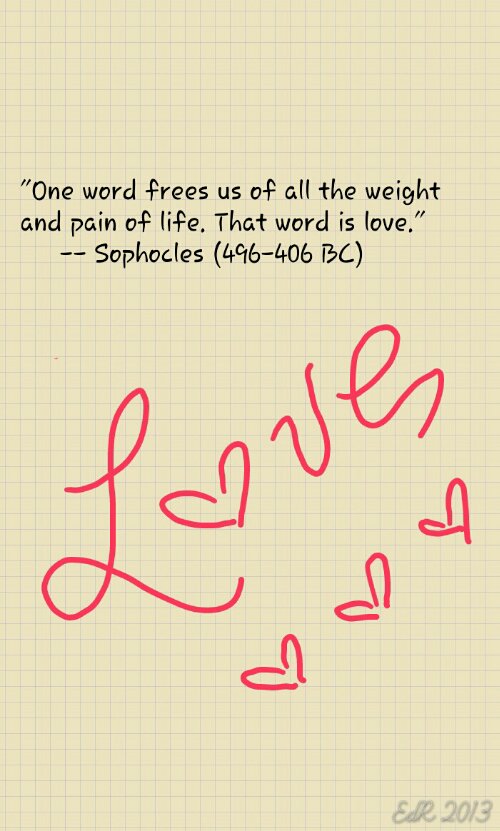 "One word frees us of all the weight
and pain of life. That word is love."
-- Sophocles (496-406 BC)
Love
EdR 2013